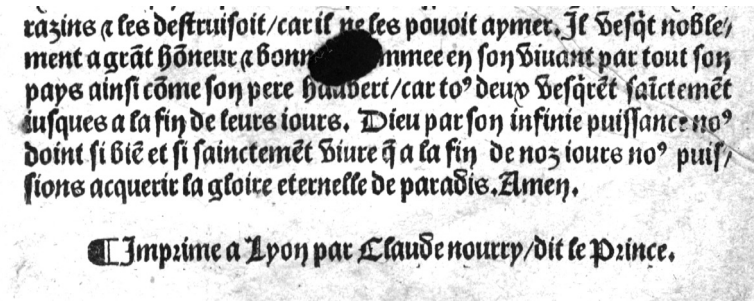 razins ⁊ les destruisoit/car il ne les pouoit aymer. Il vesq̃t noble/
ment a grãt hõneur ⁊ bonn mmee en son vivant par tout son
pays ainsi cõme son pere haubert/car toꝰ deux vesq̃rẽt saĩctemẽt
iusques a la fin de leurs iours. Dieu par son infinie puissance noꝰ
doint si biẽ et si sainctemẽt viure q̃ a la fin de noz iours noꝰ puis/
sions acquerir la gloire eternelle de paradis. Amen.
¶ Imprime a Lyon par Claude nourry/dit le Prince.